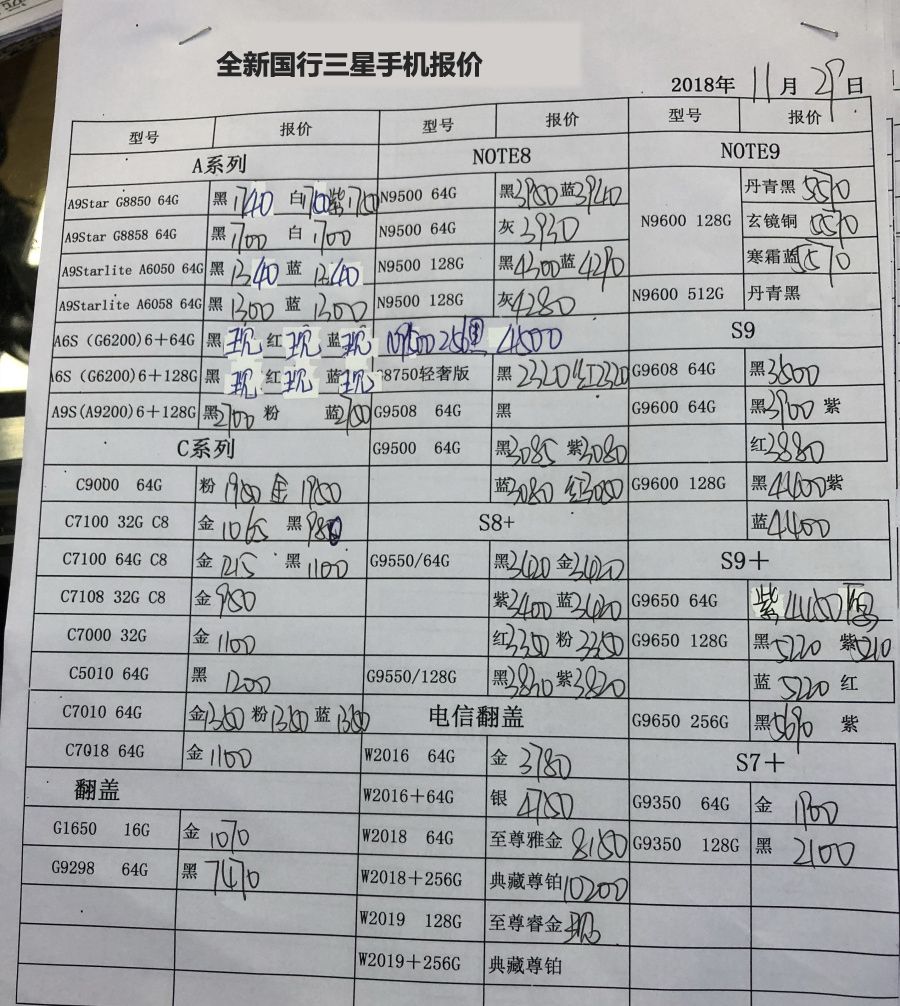 全新国行三星手机报价
2018年 11月 29日
型号 报价 型号 报价 型号 报价
A系列 NOTE8 NOTE9
A9Star G8850 64G 黑1740 白1750 紫1750 N9500 64G 黑3950 蓝3940 N9600 128G 丹青黑 5570
A9Star G8858 64G 黑1700 白1700 N9500 64G 灰3930 玄镜铜 5570
A9Starlite A6050 64G 黑1340 蓝1340 N9500 128G 黑4300 蓝4290 寒霜蓝 5570
A9Starlite A6058 64G 黑1300 蓝1300 N9500 128G 灰4280 N9600 512G 丹青黑
A6S (G6200)6+64G 黑现 红现 蓝现 N9500 256 4500 S9
A6S (G6200)6+128G 黑现 红现 蓝现 G8750轻奢版 黑2320 红2320 G9608 64G 黑3500
A9S(A9200)6+128G 黑2700 粉 蓝2750 G9508 64G 黑 G9600 64G 黑3900 紫
C系列 G9500 64G 黑3085 紫3080 红3880
C9000 64G 粉1950 金1950 蓝3080 红3080 G9600 128G 黑4400 紫
C7100 32G C8 金1065 黑980 S8+ 蓝4400
C7100 64G C8 金1215 黑1100 G9550/64G 黑3420 金3420 S9+
C7108 32G C8 金950 紫3400 蓝3420 G9650 64G 紫4450
C7000 32G 金1100 红3350 粉3350 G9650 128G 黑5220 紫5210
C5010 64G 黑1200 G9550/128G 黑3830 紫3820 蓝5220 红
C7010 64G 金1350 粉1350 蓝1350 电信翻盖 G9650 256G 黑5690 紫
C7018 64G 金1100 W2016 64G 金3780 S7+
翻盖 W2016+64G 银4750 G9350 64G 金1900
G1650 16G 金1070 W2018 64G 至尊雅金8150 G9350 128G 黑2100
G9298 64G 黑7470 W2018+256G 典藏尊铂10200
W2019 128G 至尊睿金现
W2019+256G 典藏尊铂